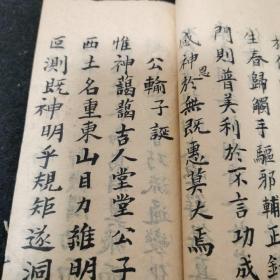 於
生春歸觸手驅邪輔正
門則普美利於不言功成
感神恩於無既惠莫大焉
公輸子誕
惟神藹藹古人堂堂公子
西土名重東山目力雖明
叵測既神明乎規矩遂洞